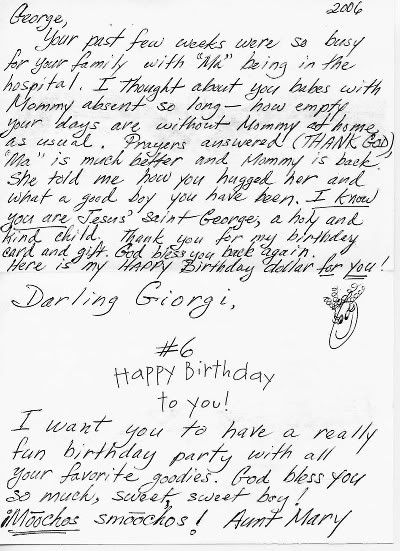 George,
2006
Your past few weeks were so busy
for your family with "Ma" being in the
hospital. I thought about you babes with
Mommy absent so long — how empty
your days are without Mommy at home
as usual. Prayers answered (THANK GOD),
"Ma" is much better and Mommy is back.
She told me how you hugged her and
what a good boy you have been. I know
you are Jesus' Saint George, a holy and
kind child. Thank you for my birthday
card and gift. God bless you back again.
Here is my HAPPY Birthday dollar for you!
Darling Giorgi,
#6
HAPPY Birthday
to you!
I want you to have a really
fun birthday party with all
your favorite goodies. God bless you
so much, sweet, sweet boy!
¡Mōochos smōochos! Aunt Mary